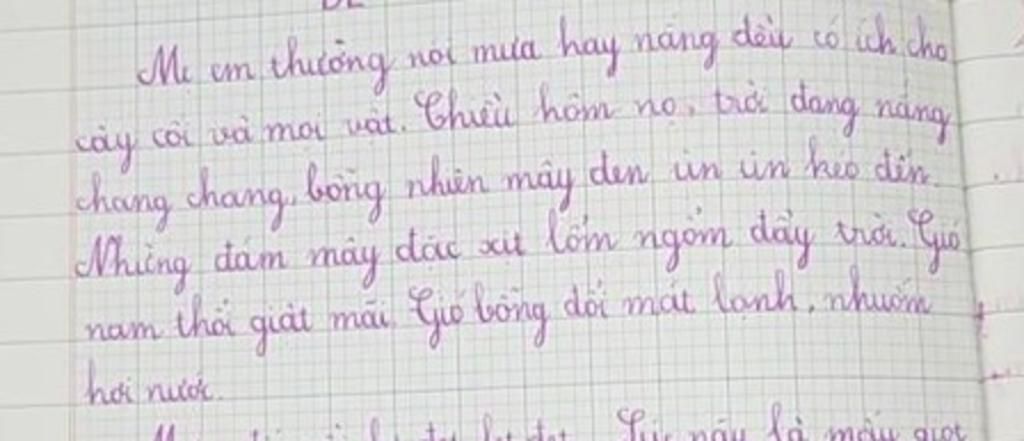 Mẹ em thường nói mưa hay nắng đều có ích cho
cây cối và mọi vật. Chiều hôm nọ, trời đang nắng
chang chang, bỗng nhiên mây đen ùn ùn kéo đến.
Những đám mây đặc xịt lổm ngổm đầy trời. Gió
nam thổi giật mãi. Gió bỗng đổi mát lạnh, nhuốm
hơi nước.